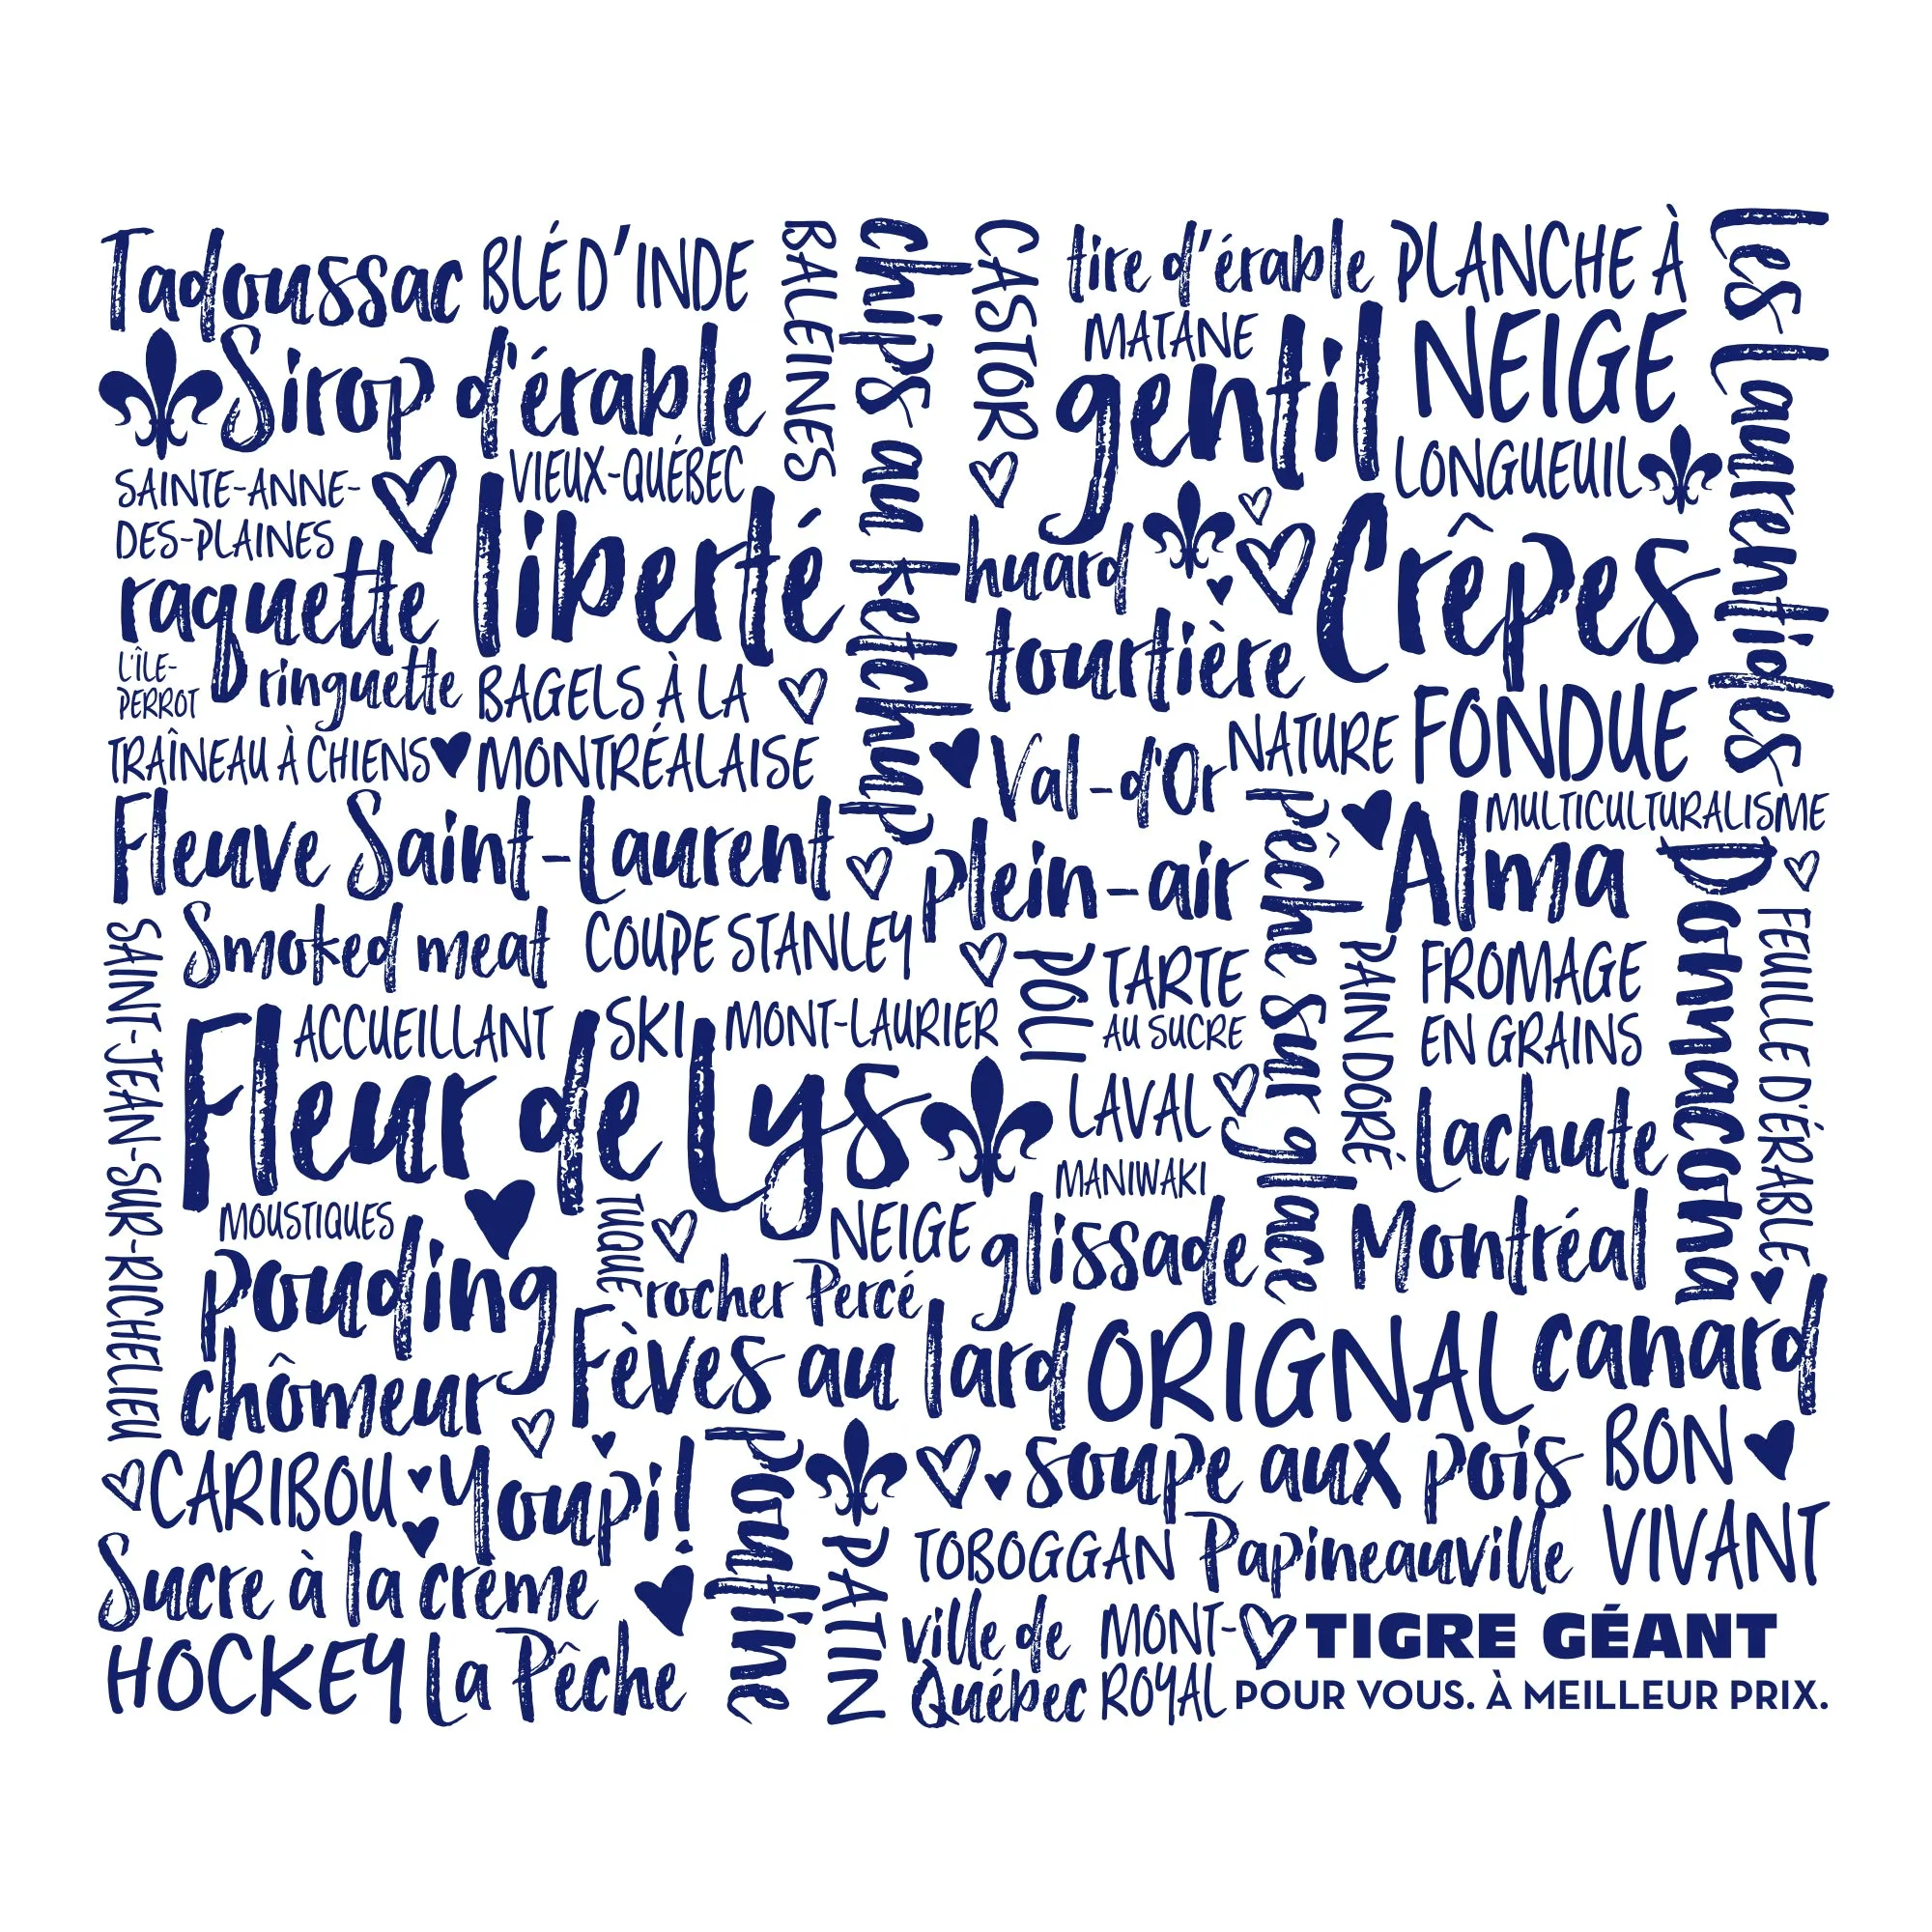 Tadoussac
BLÉ D'INDE
BALEINES
chips au ketchup
CASTOR
tire d'érable
PLANCHE À
NEIGE
Les Laurentides
Sirop d'érable
MATANE
gentil
LONGUEUIL
SAINTE-ANNE-
DES-PLAINES
VIEUX-QUÉBEC
liberté
huard
Crêpes
raquette
tourtière
L'ÎLE-
PERROT
ringuette
BAGELS À LA
MONTRÉALAISE
TRAÎNEAU À CHIENS
Val-d'Or
NATURE
FONDUE
Fleuve Saint-Laurent
plein-air
pêche sur glace
Alma
MULTICULTURALISME
Donnacona
FEUILLE D'ÉRABLE
SAINT-JEAN-SUR-RICHELIEU
Smoked meat
COUPE STANLEY
POLI
TARTE
AU SUCRE
PAIN DORÉ
FROMAGE
EN GRAINS
ACCUEILLANT
SKI
MONT-LAURIER
Fleur de Lys
LAVAL
Lachute
MANIWAKI
MOUSTIQUES
TUQUE
NEIGE
glissade
Montréal
pouding
chômeur
rocher Percé
Fèves au lard
ORIGNAL
canard
CARIBOU
Youpi!
poutine
soupe aux pois
BON
VIVANT
Sucre à la crème
PATIN
TOBOGGAN
Papineauville
HOCKEY
La Pêche
ville de
Québec
MONT-
ROYAL
TIGRE GÉANT
POUR VOUS. À MEILLEUR PRIX.